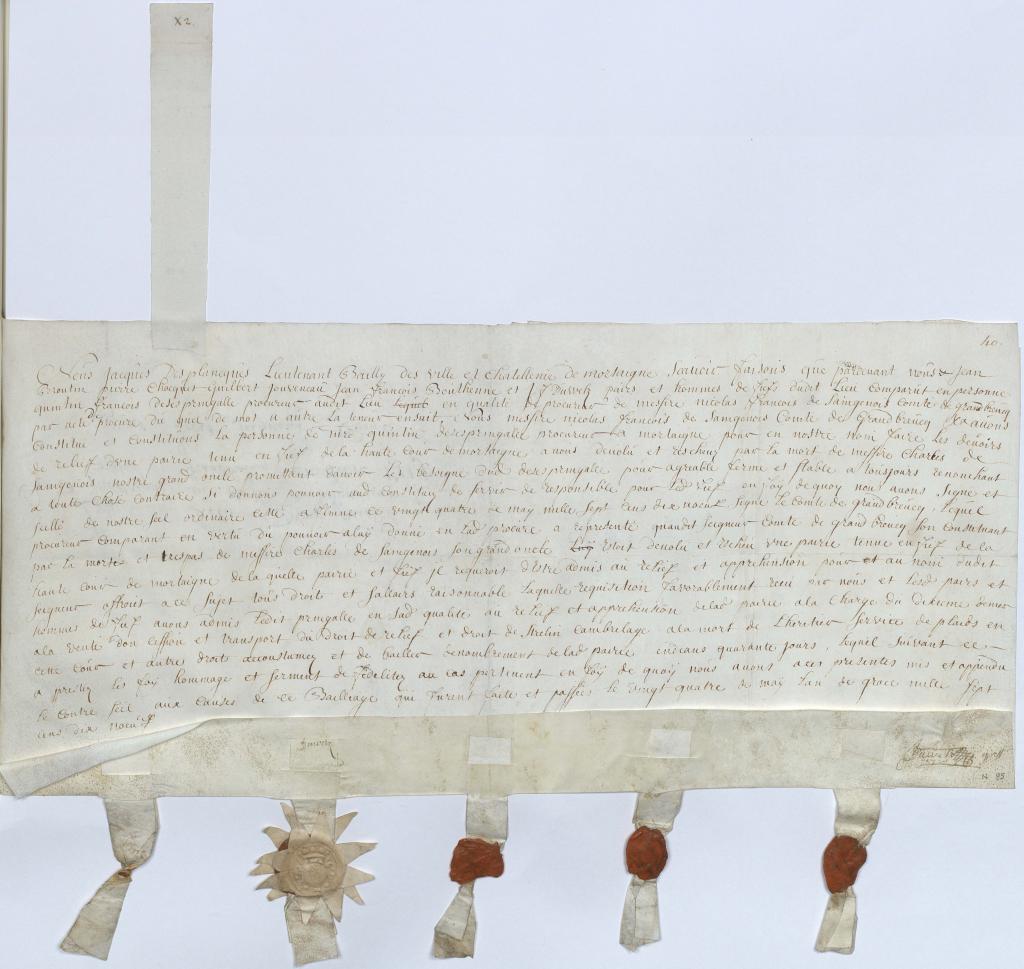 X2
40.
Nous Jacques Desplancques Lieutenant Bailly des ville et Chatellenie de mortaigne scavoir faisons que pardevant nous Jean
Broutin pierre Chocquet Guilbert Jouveneau Jean francois Boulhenne et pairs et hommes de fiefs dudit Lieu Comparut en personne
quintin francois desespringalle procureur audit Lieu en qualité de procureur de messire nicolas francois de Saingenois comte de grandbreucq
par acte procure du quel de mot a autre la teneur ensuit, Nous messire nicolas francois de Saingenois Comte de Grandbreucq avons
Constitué et constituons la personne de quintin desespringalle procureur a mortaigne pour en nostre nom faire les devoirs
de relief dune pairie tenu en fief de la haute Cour de mortaigne a nous devolu et escheue par la mort de messire Charles de
Saingenois nostre grand oncle promettant davoir Les besogne dud desespringalle pour agreable ferme et stable a tousjours renonchant
a toute chose contraire si donnons pouvoir aud constitue de servir de responsible pour led fief en foy de quoy nous avons signe et
sellé de nostre seel ordinaire ceste a le vingt quatre de may mille sept cens dix noeuf signe le comte de grandbreucq, lequel
procureur comparant en vertu du pouvoir a luy donné en lad procure a representé quaudit seigneur comte de grand breucq son constituant
par la morte et trespas de messire Charles de Saingenois son grand oncle estoit devolu et escheu une pairie tenue en fief de la
haute cour de mortaigne de la quelle pairie et fief il requeroit destre admis au relief et apprehension pour et au nom dudit
seigneur offroit a ce sujet tous droits et sallairs raisonnable laquelle requisition favorablement receu par nous et lesd pairs et
hommes de fief avons admis ledit pringalle en sad qualité au relief et apprehension de lad pairie a la charge du dixieme denier
a la vente don cession et transport du droit de relief et droit de Cambrelage a la mort de lheritier service de plaids en
cette cour et autres droit accoustumez et de bailler denombrement de lad pairie endeans quarante jours, lequel suivant ce
a prestez les foy hommage et serment de fidelitez au cas pertinent en foy de quoy nous avons a ces presentes mis et appendu
le contre seel aux causes de ce Bailliage qui furent faite et passées le vingt quatre de may lan de grace mille sept
cens dix noeuf
N 85